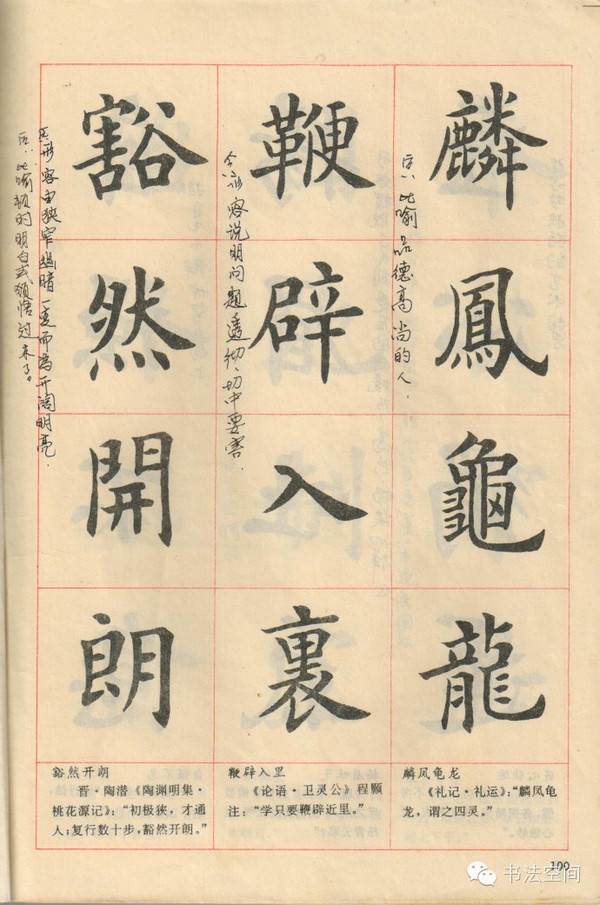 麟鳳龜龍
喻:比喻品德高尚的人.
鞭辟入裏
今:形容说明问题透彻、切中要害.
豁然開朗
①形容由狭窄幽暗一变而为开阔明亮.
比喻顿时明白或领悟过来了。
麟凤龟龙
《礼记·礼运》:“麟凤龟
龙,谓之四灵。”
鞭辟入里
《论语·卫灵公》程颢
注:“学只要鞭辟近里。”
豁然开朗
晋·陶潜《陶渊明集·
桃花源记》:“初极狭,才通
人;复行数十步,豁然开朗。”
109
书法空间